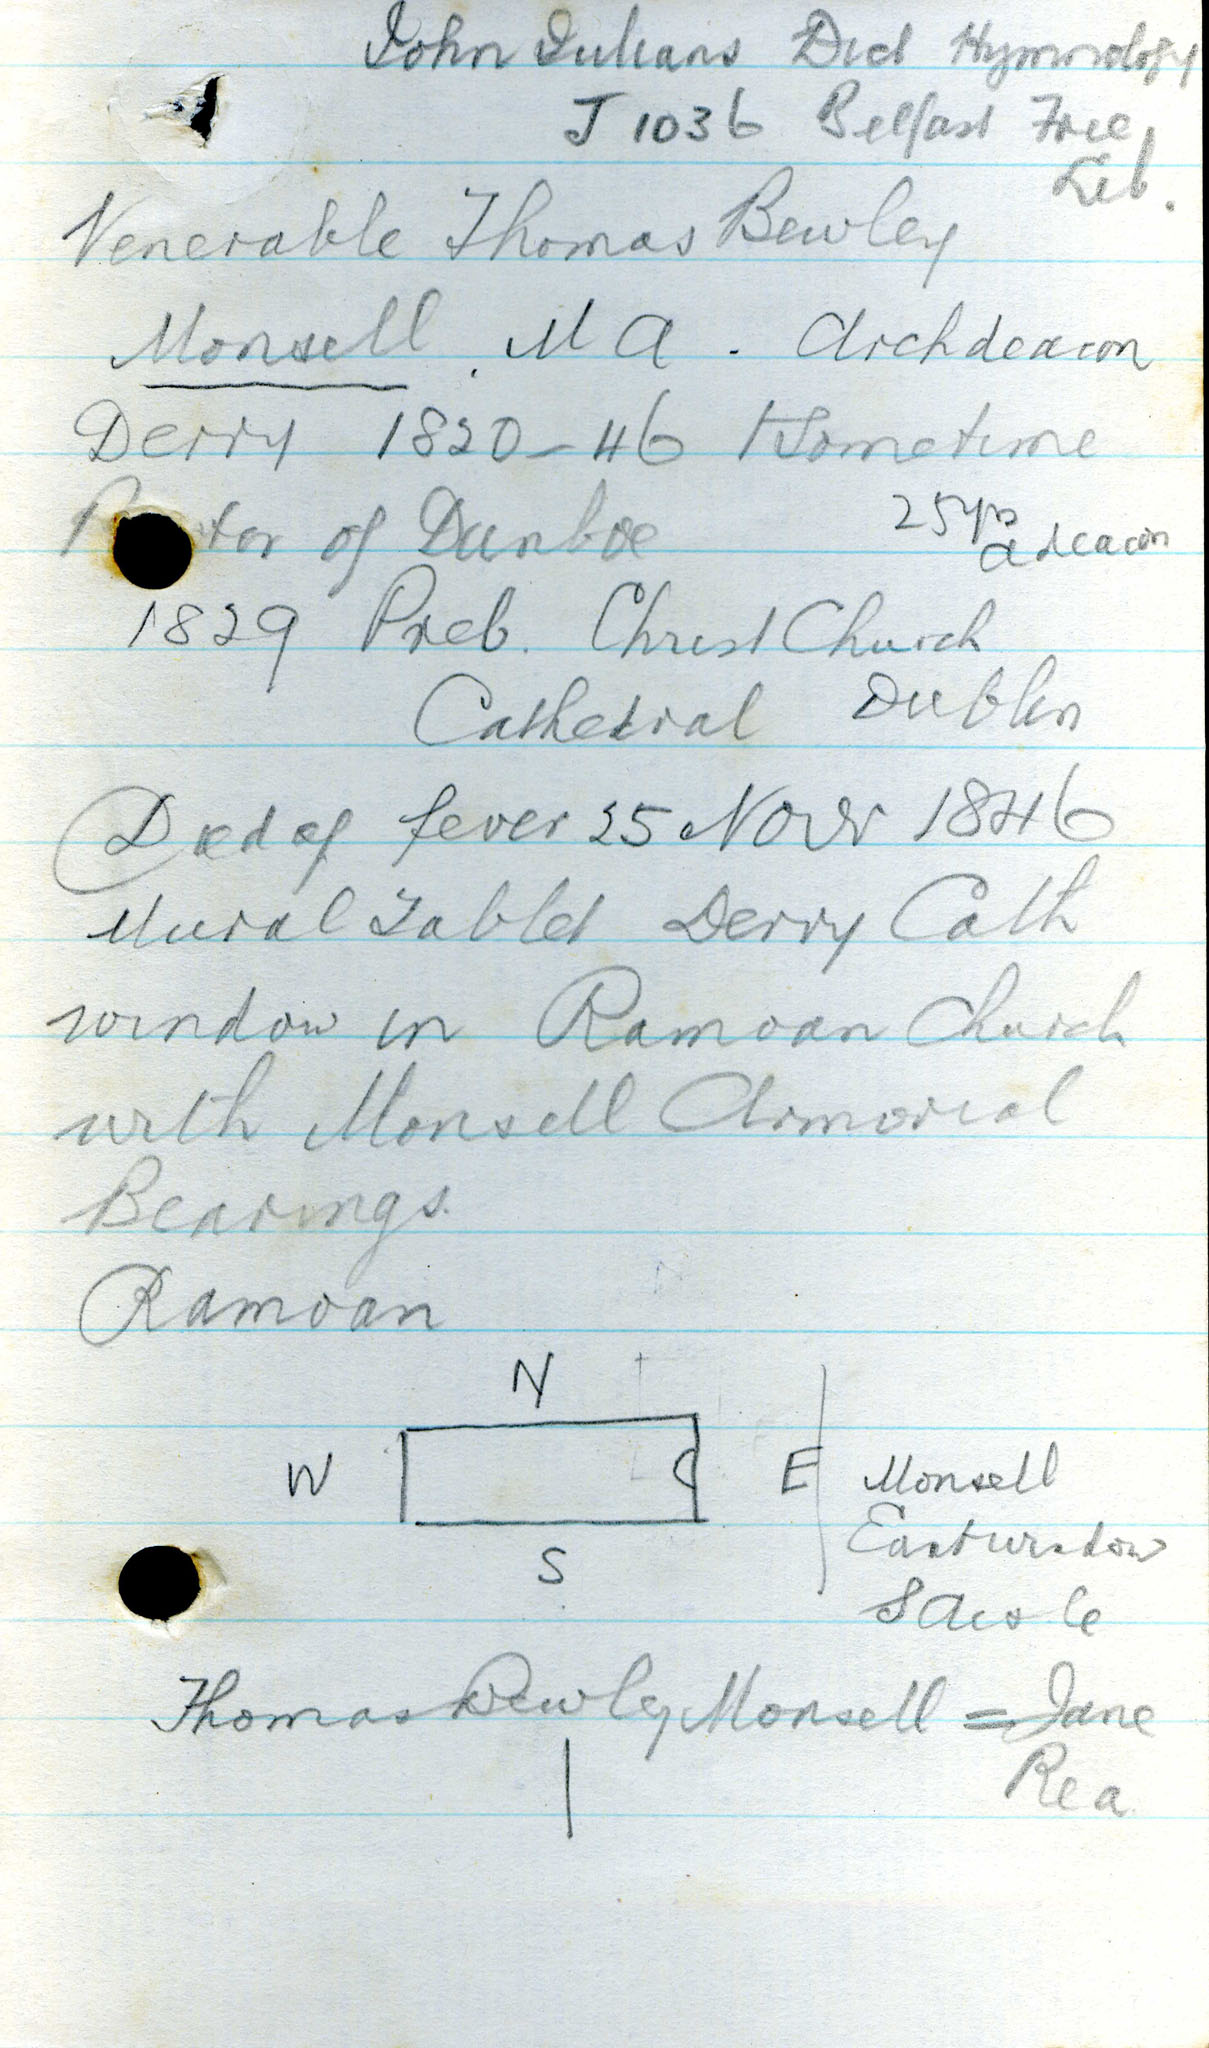 John Julians Dict Hymnology
J 1036 Belfast Free
Lib.
Venerable Thomas Bewley
Monsell. M A. Archdeacon
Derry 1820-46 & Sometime
tor of Dunboe
25 yrs
a deacon
1829 Preb. Christ Church
Cathedral Dublin
Died of fever 25 Novr 1846
Mural Tablet Derry Cath
window in Ramoan Church
with Monsell Armorial
Bearings.
Ramoan
N
W E
S
Monsell
East window
S Aisle
Thomas Bewley Monsell = Jane
Rea